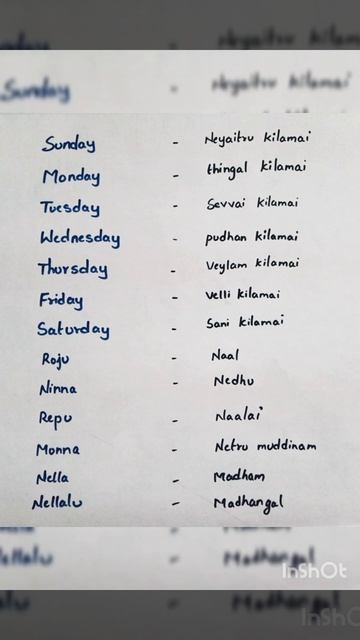 Sunday - Neyaitru kilamai
Monday - thingal kilamai
Tuesday - Sevvai kilamai
Wednesday - pudhan kilamai
Thursday - Veylam kilamai
Friday - Velli kilamai
Saturday - Sani kilamai
Roju - Naal
Ninna - Nedhu
Repu - Naalai
Monna - Netru muddinam
Nella - Madham
Nellalu - Madhangal
InShOt